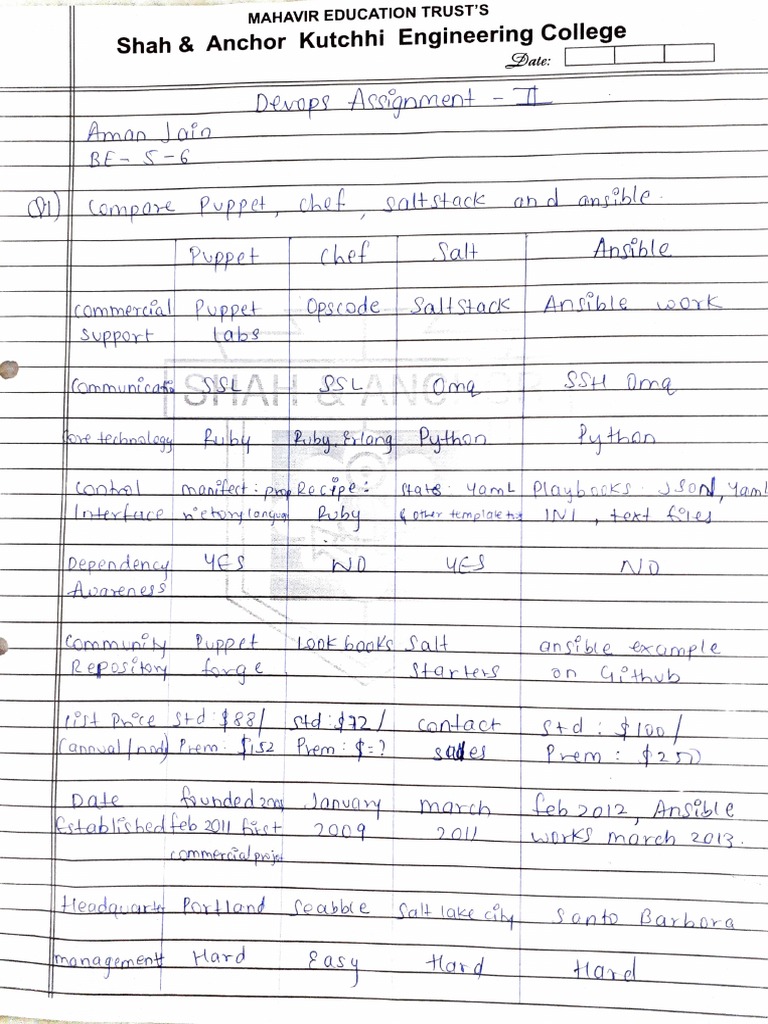 MAHAVIR EDUCATION TRUST'S
Shah & Anchor Kutchhi Engineering College
Date:
Devops Assignment - II
Aman Jain
BE - 5 - 6
Q1) Compare Puppet, Chef, Saltstack and ansible.
Puppet Chef Salt Ansible
Commercial Puppet Opscode Saltstack Ansible work
Support Labs
Communicatio SSL SSL Omq SSH Omq
SHAH & ANCHOR
Core technology Ruby Ruby, Erlang Python Python
Control manifest: prop Recipe: State: Yaml Playbooks: JSON, Yaml
Interface rietory langua Ruby & other template INI, text files
Dependency YES NO YES NO
Awareness
Community Puppet Cookbooks Salt ansible example
Repository forge Starters on Github
List Price Std: $88/ Std: $72/ contact Std: $100/
(annual/nod) Prem: $152 Prem: $=? sales Prem: $250
Date founded January march feb 2012, Ansible
Established feb 2011 first 2009 2011 works march 2013.
commercial projec
Headquarte Portland Seabble Salt lake city Santo Barbora
management Hard Easy Hard Hard